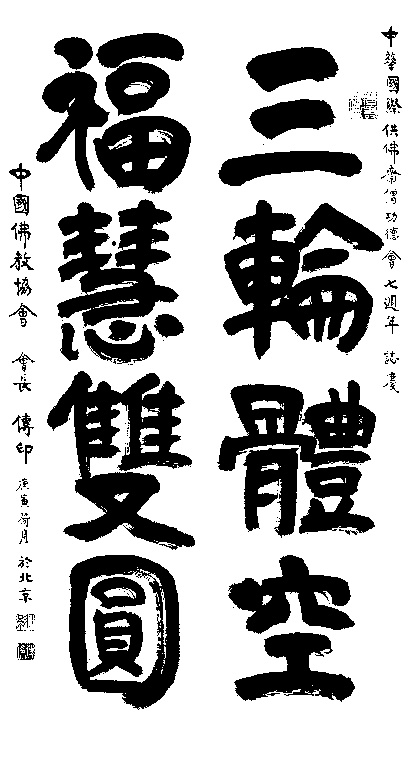 中華國際供佛齋僧功德會七週年 誌慶
三輪體空
福慧雙圓
中國佛教協會 會長 傳印
庚寅荷月 於北京